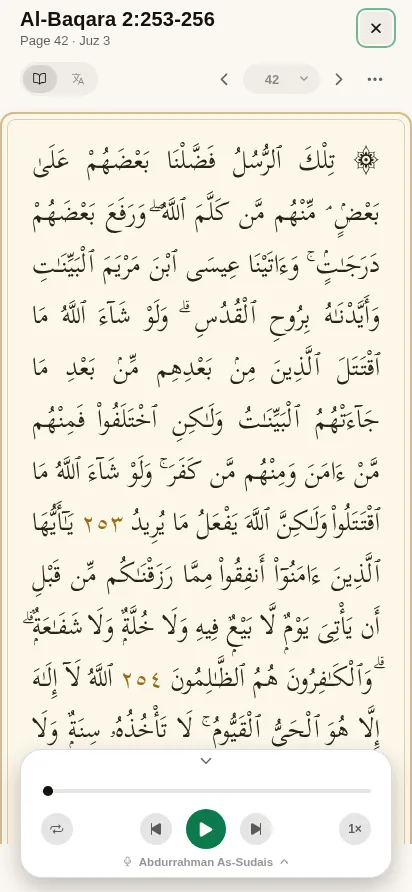 Al-Baqara 2:253-256
Page 42 · Juz 3
42
۞ تِلْكَ ٱلرُّسُلُ فَضَّلْنَا بَعْضَهُمْ عَلَىٰ
بَعْضٍۢ ۘ مِّنْهُم مَّن كَلَّمَ ٱللَّهُ ۖ وَرَفَعَ بَعْضَهُمْ
دَرَجَـٰتٍۢ ۚ وَءَاتَيْنَا عِيسَى ٱبْنَ مَرْيَمَ ٱلْبَيِّنَـٰتِ
وَأَيَّدْنَـٰهُ بِرُوحِ ٱلْقُدُسِ ۗ وَلَوْ شَآءَ ٱللَّهُ مَا
ٱقْتَتَلَ ٱلَّذِينَ مِنۢ بَعْدِهِم مِّنۢ بَعْدِ مَا
جَآءَتْهُمُ ٱلْبَيِّنَـٰتُ وَلَـٰكِنِ ٱخْتَلَفُوا۟ فَمِنْهُم
مَّنْ ءَامَنَ وَمِنْهُم مَّن كَفَرَ ۚ وَلَوْ شَآءَ ٱللَّهُ مَا
ٱقْتَتَلُوا۟ وَلَـٰكِنَّ ٱللَّهَ يَفْعَلُ مَا يُرِيدُ ٢٥٣ يَـٰٓأَيُّهَا
ٱلَّذِينَ ءَامَنُوٓا۟ أَنفِقُوا۟ مِمَّا رَزَقْنَـٰكُم مِّن قَبْلِ
أَن يَأْتِىَ يَوْمٌۭ لَّا بَيْعٌۭ فِيهِ وَلَا خُلَّةٌۭ وَلَا شَفَـٰعَةٌۭ ۗ
وَٱلْكَـٰفِرُونَ هُمُ ٱلظَّـٰلِمُونَ ٢٥٤ ٱللَّهُ لَآ إِلَـٰهَ
إِلَّا هُوَ ٱلْحَىُّ ٱلْقَيُّومُ ۚ لَا تَأْخُذُهُۥ سِنَةٌۭ وَلَا
1×
Abdurrahman As-Sudais